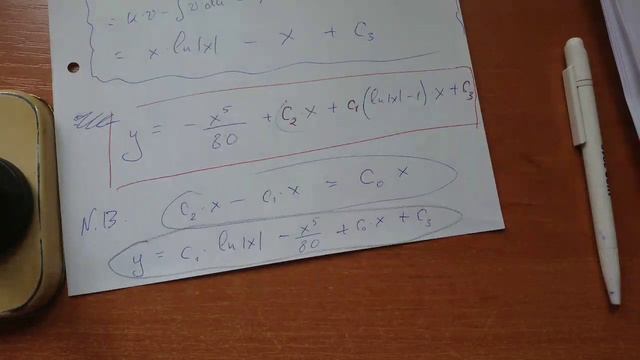 = u·v - ∫v du
= x ln|x| - x + C₃
y = - x⁵/80 + C₂ x + c₁(ln|x| - 1) x + C₃
N.B. C₂·x - c₁·x = C₀ x
y = c₁· ln|x| - x⁵/80 + c₀ x + C₃